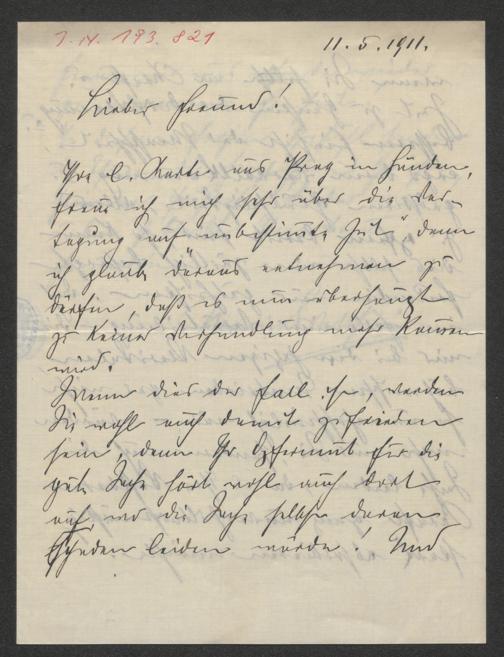 I.N. 193.821
11.5.1911.
Lieber Freund!
Ihre l. Karte aus Prag in Händen,
freue ich mich sehr über die Ver-
tagung auf unbestimmte Zeit" denn
ich glaube daraus entnehmen zu
dürfen, daß es nun überhaupt
zu keiner Verhandlung mehr kommen
wird.
Wenn dies der Fall ist, werden
Sie wohl auch damit zufrieden
sein, denn Ihr Opfermut für die
gute Sache hört wohl auch dort
auf, wo die Sache selbst daran
Schaden leiden würde! Und